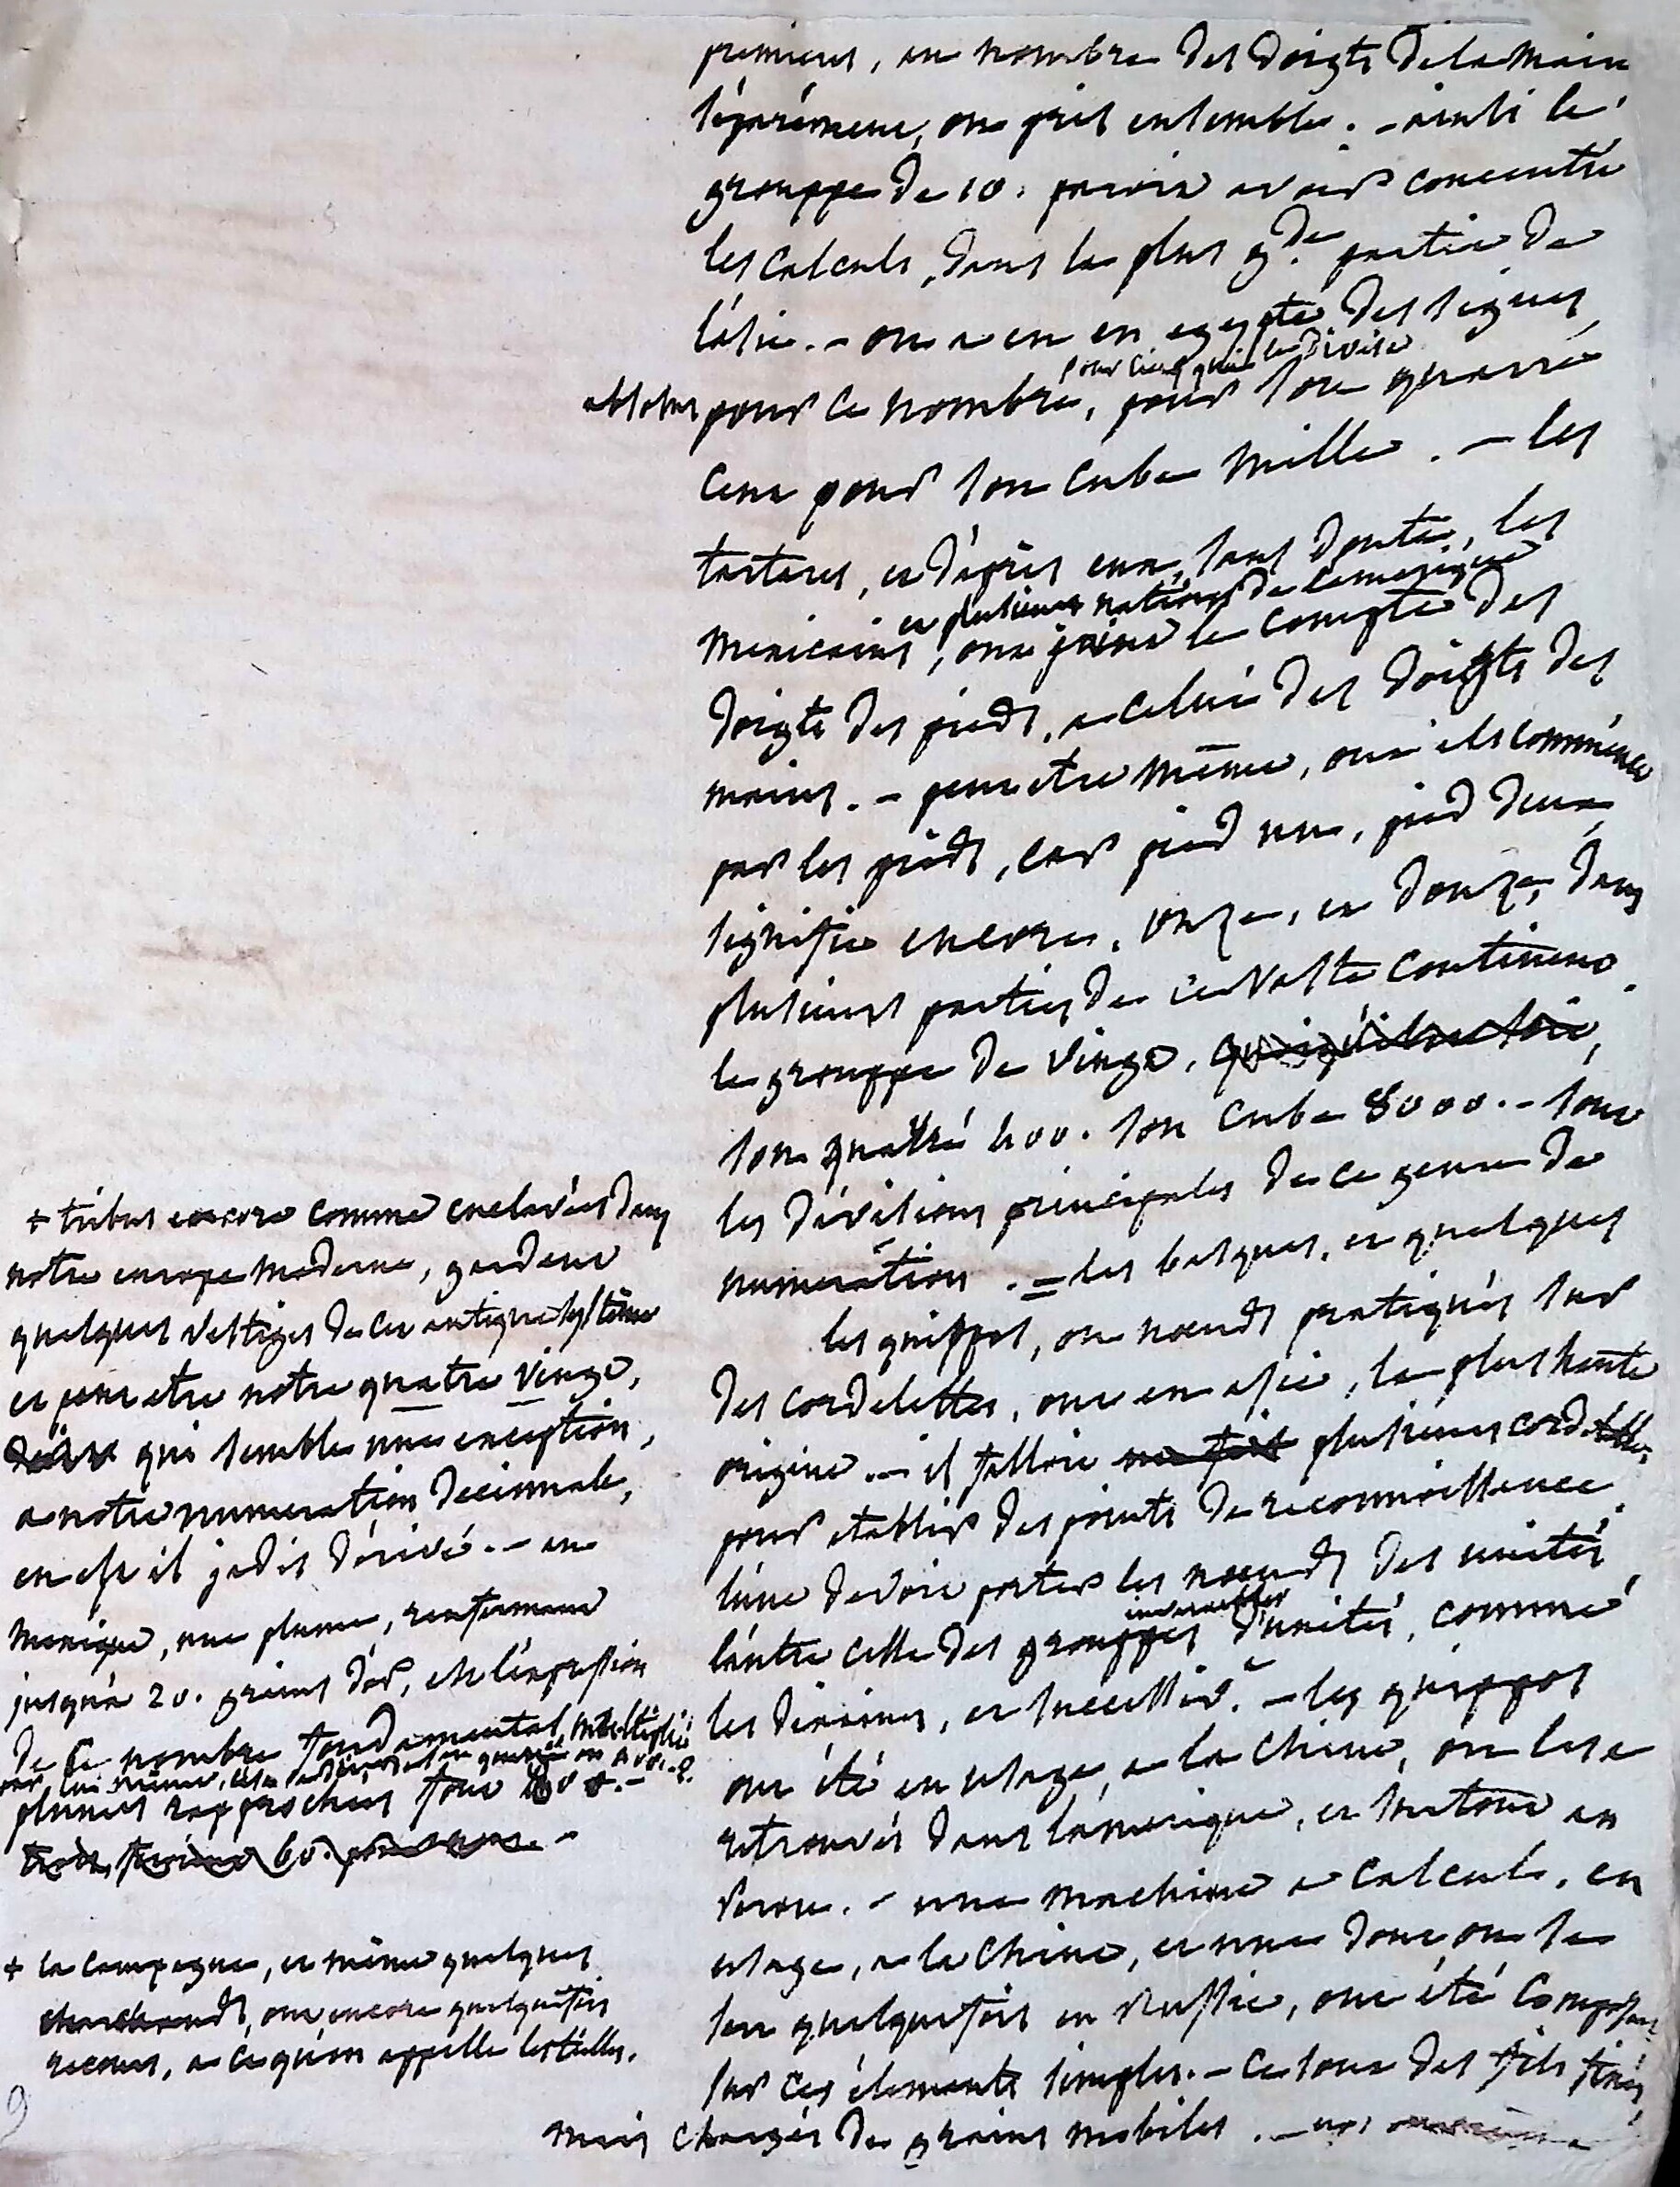 premiers, au nombre des doigts de la main
séparément, ou pris ensemble. - ainsi le
grouppe de 10. paroit avoir concentré
les calculs, dans la plus gde partie de
l'asie. - on a eu en egypte des signes
pour cinq qui le divise
absolus pour ce nombre, pour son quarré
cent pour son cube mille. - les
tartares, et d'après eux, sans doute, les
et plusieurs nations de l'amerique
mexicains, ont joint le compte des
doigts des pieds, a celui des doigts des
mains. - peut etre même, ont ils commencé
par les pieds, car pied un, pied deux,
signifie encore, onze, et douze, dans
plusieurs parties de ce vaste continent.
le grouppe de vingt, quoiqu'il en soit,
son quarré 400. son cube 8000. - sont
les divisions principales de ce genre de
numération. = les basques, et quelques
+ tribus encore comme enclavées dans
notre europe moderne, gardent
quelques vestiges de cet antique systême
et peut etre notre quatre vingt,
qui semble une exception,
a notre numeration decimale,
en est il jadis dérivé. - au
mexique, une plume, renfermant
jusqu'à 20. grains d'or, est l'expression
de ce nombre fondamental, multiplié
par lui même,
plumes rapprochées font
60.
les quippos, ou nœuds pratiqués sur
des cordelettes, ont en asie, la plus haute
origine. - il falloit plusieurs cordelettes
pour etablir des points de reconnoissance.
l'une devoit porter les nœuds des unités,
l'autre celle des grouppes d'unités, comme
les dixaines, et successivt. - les quippos
ont été en usage, a la chine, on les a
retrouvés dans l'amerique, et surtout au
perou. - une machine a calculs, en
usage, a la chine, et une dont on se
sert quelquefois en Russie, ont été composées
sur ces élements simples. - ce sont des fils fixés,
mais chargés de grains mobiles. - nos
+ la campagne, et même quelques
marchands, ont encore quelquefois
recours, a ce qu'on appelle les tailles.